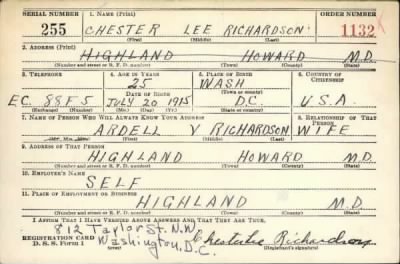 SERIAL NUMBER 1. NAME (Print) ORDER NUMBER
255 CHESTER LEE RICHARDSON 1132
(First) (Middle) (Last)
2. ADDRESS (Print)
HIGHLAND HOWARD M.D.
(Number and street or R. F. D. number) (Town) (County) (State)
3. TELEPHONE 4. AGE IN YEARS 5. PLACE OF BIRTH 6. COUNTRY OF CITIZENSHIP
25 WASH
DATE OF BIRTH (Town or county)
E.C. 88F5 JULY 20 1915 D.C. U.S.A.
(Exchange) (Number) (Mo.) (Day) (Yr.) (State or country)
7. NAME OF PERSON WHO WILL ALWAYS KNOW YOUR ADDRESS 8. RELATIONSHIP OF THAT PERSON
ARDELL V RICHARDSON WIFE
(Mr., Mrs., Miss) (First) (Middle) (Last)
9. ADDRESS OF THAT PERSON
HIGHLAND HOWARD M.D.
(Number and street or R. F. D. number) (Town) (County) (State)
10. EMPLOYER'S NAME
SELF
11. PLACE OF EMPLOYMENT OR BUSINESS
HIGHLAND M.D.
(Number and street or R. F. D. number) (Town) (County) (State)
I AFFIRM THAT I HAVE VERIFIED ABOVE ANSWERS AND THAT THEY ARE TRUE.
812 Taylor St. N.W.
REGISTRATION CARD Washington, D.C. Chester Lee Richardson
D. S. S. Form 1 (Registrant's signature)